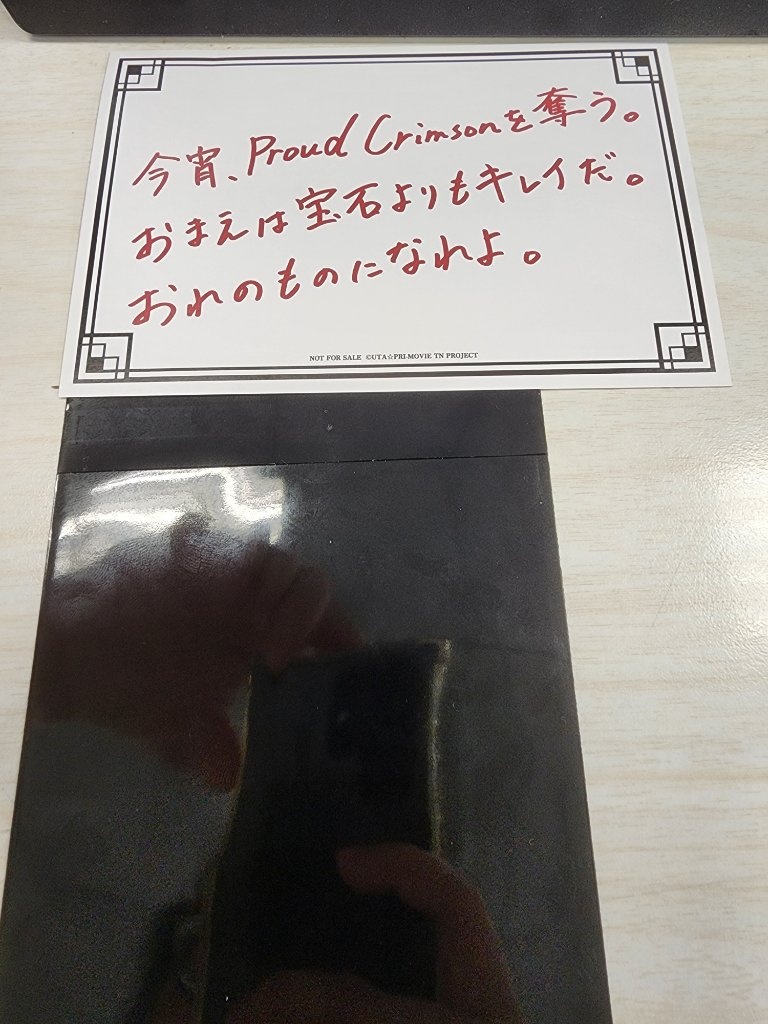 今宵、Proud Crimsonを奪う。
おまえは宝石よりもキレイだ。
おれのものになれよ。
NOT FOR SALE ©UTA☆PRI-MOVIE TN PROJECT